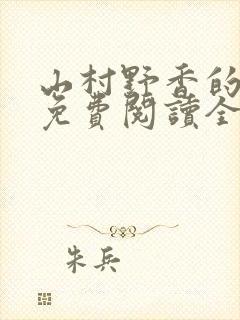 山村野香的
免費閱讀全
朱兵